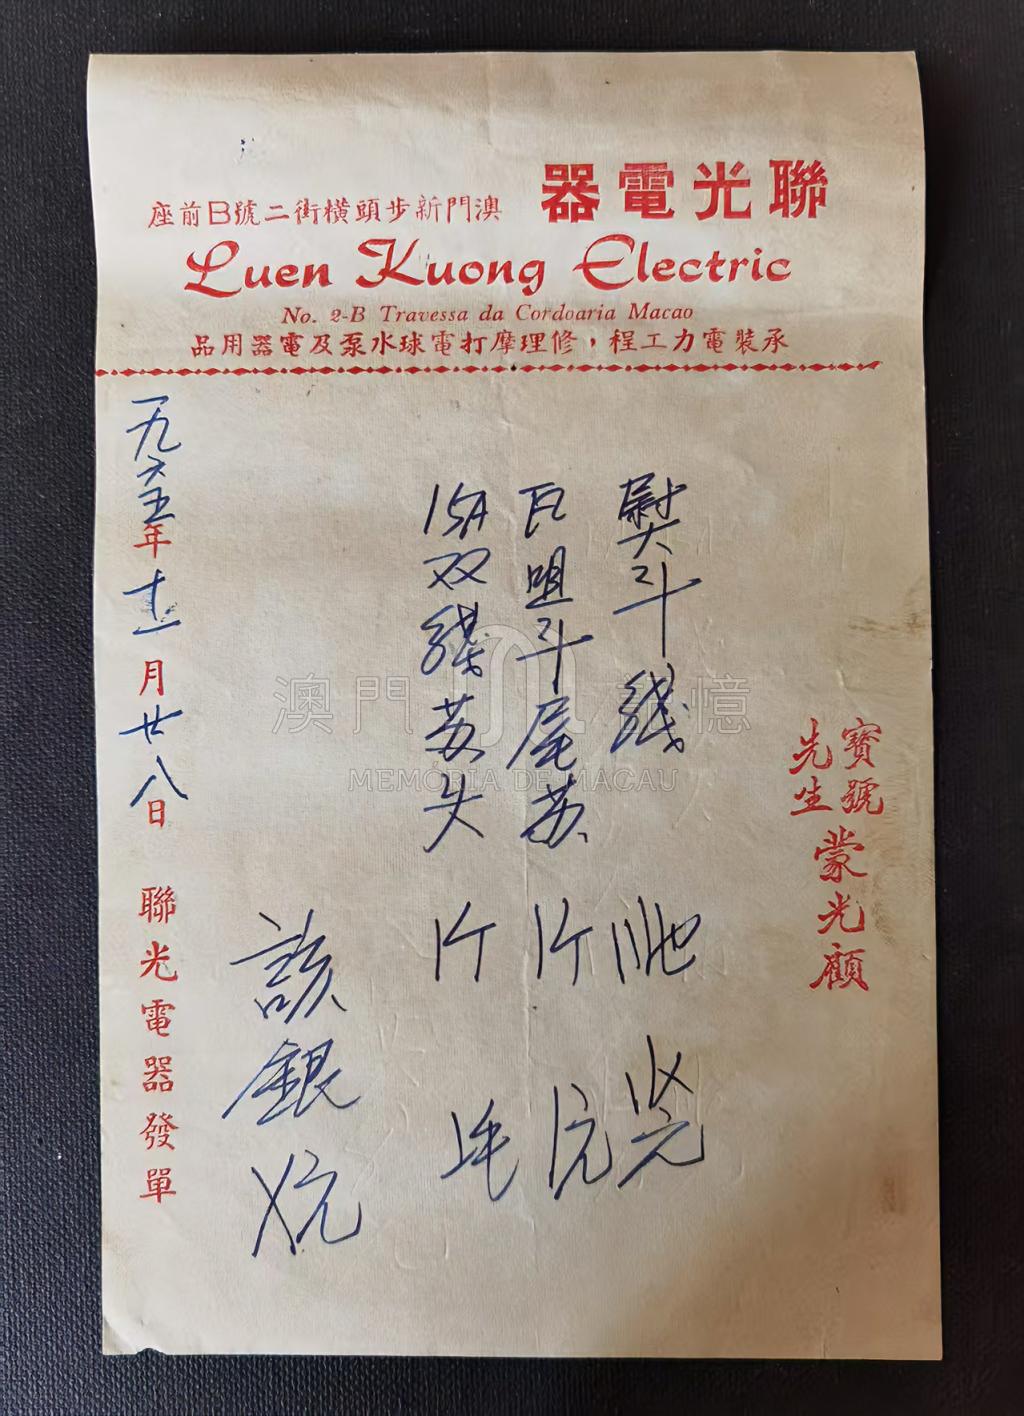 聯光電器
澳門新步頭橫街二號B前座
Luen Kuong Electric
No. 2-B Travessa da Cordoaria Macao
承裝電力工程，修理摩打電球水泵及電器用品
寶號
先生
蒙光顧
熨斗线
瓦咀斗尾苏
15A双线苏头
該銀
一九六五年十一月廿八日
聯光電器發單
澳門記憶
MEMÓRIA DE MACAU